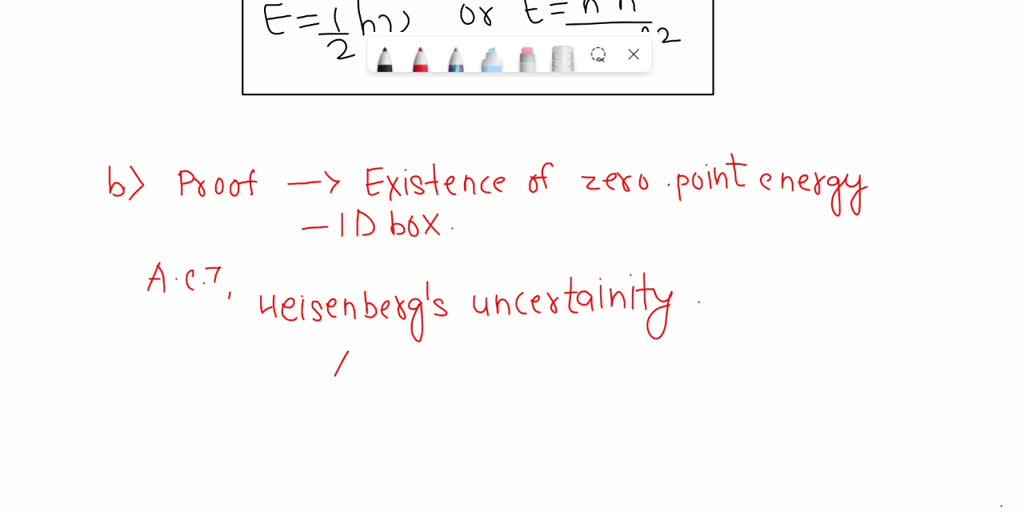 E = 1/2 hν or E =
2
b) Proof —> Existence of zero point energy
— 1D box.
A.C.T, Heisenberg's uncertainity